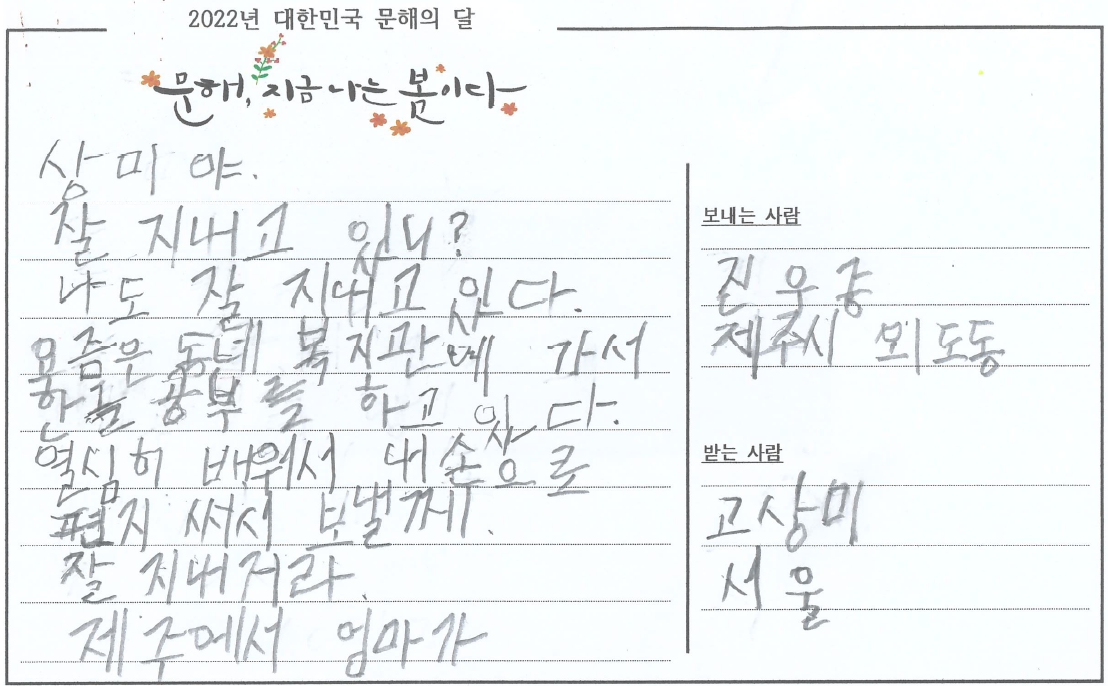 2022년 대한민국 문해의 달
문해, 지금 나는 봄이다
상미야.
잘 지내고 있니?
나도 잘 지내고 있다.
요즘은 동네 복지관에 가서
한글 공부를 하고 있다.
열심히 배워서 내 손으로
편지 써서 보낼께.
잘 지내거라.
제주에서 엄마가
보내는 사람
진우종
제주시 외도동
받는 사람
고상미
서울